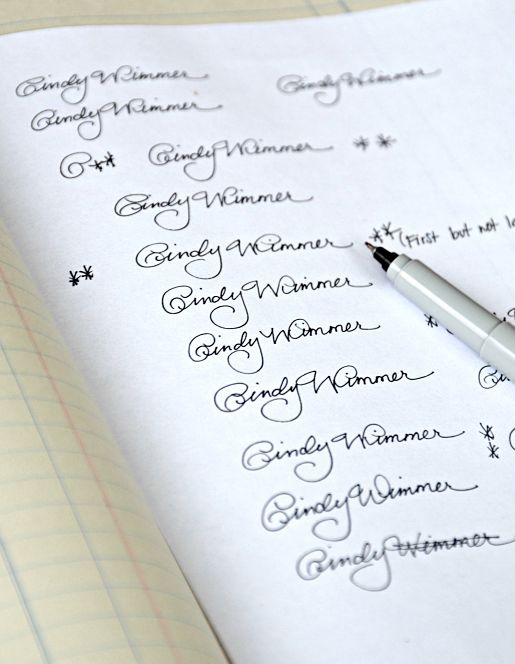 Cindy Wimmer Cindy Wimmer
Cindy Wimmer
C** Cindy Wimmer **
Cindy Wimmer
** Cindy Wimmer **(First but not
Cindy Wimmer
Cindy Wimmer *
Cindy Wimmer
Cindy Wimmer **
Cindy Wimmer
Cindy Wimmer